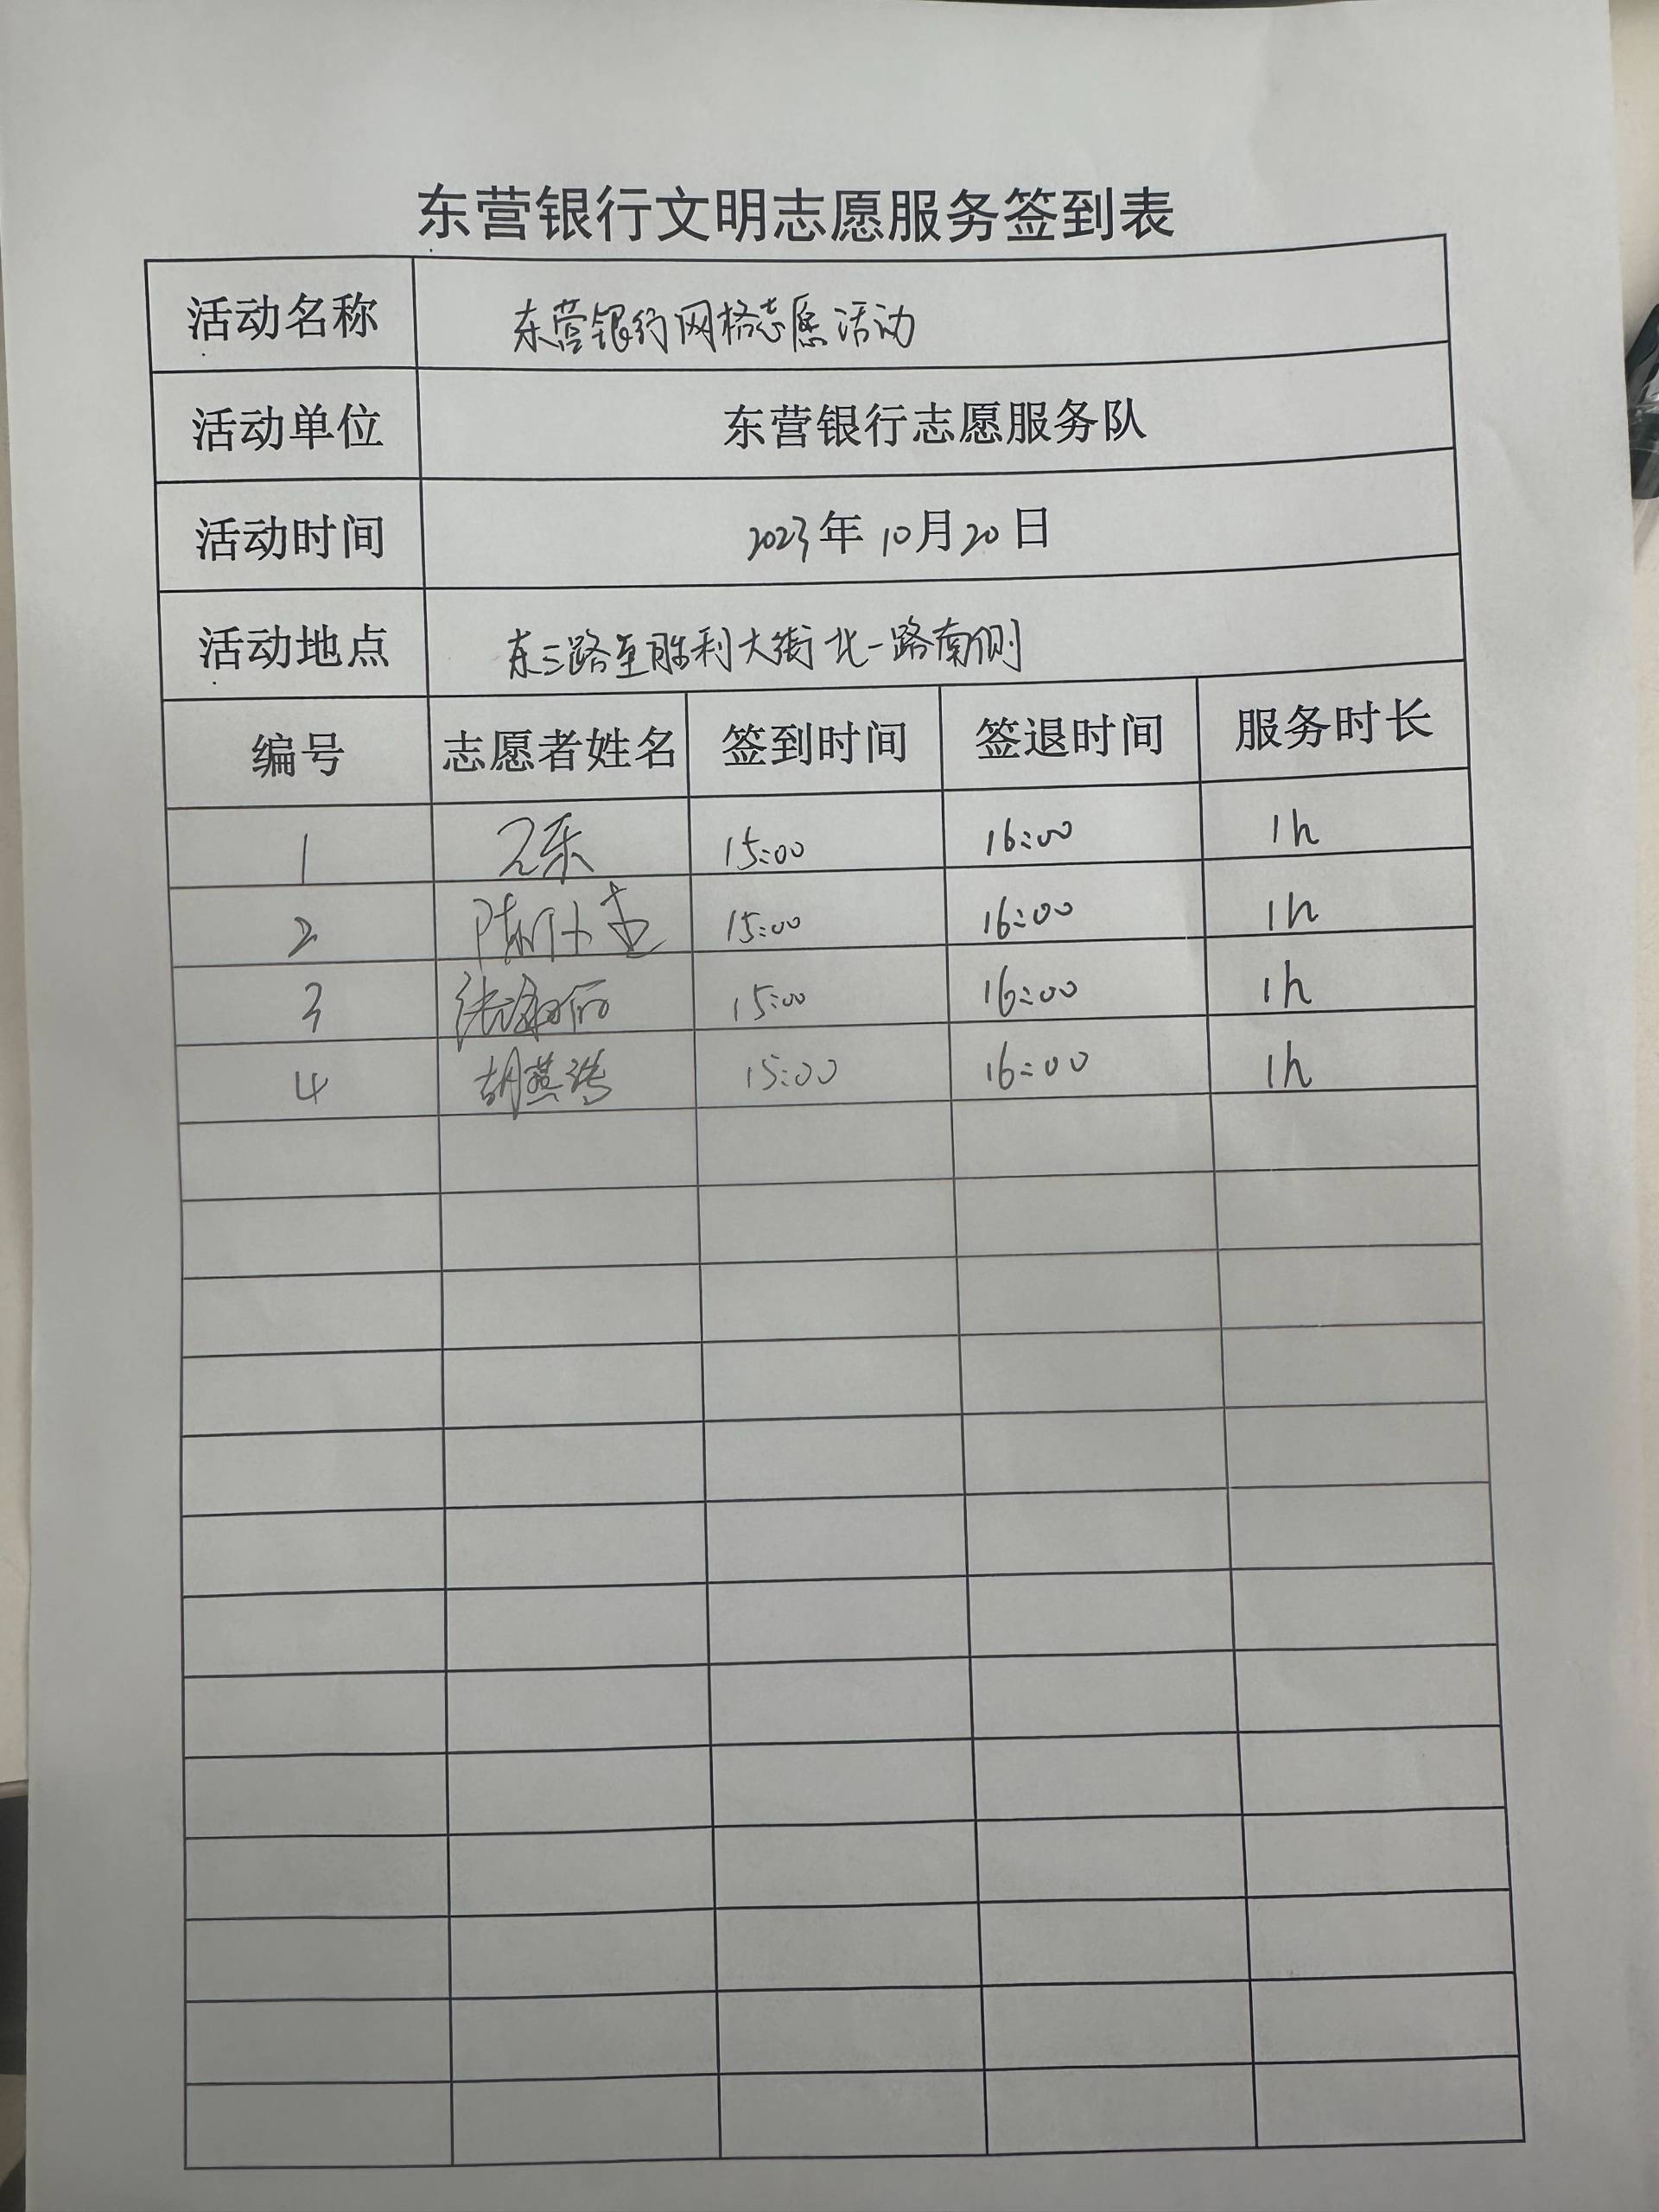 东营银行文明志愿服务签到表
活动名称 东营银行网格志愿活动
活动单位 东营银行志愿服务队
活动时间 2023年10月20日
活动地点 东三路至胜利大街北一路南侧
编号 志愿者姓名 签到时间 签退时间 服务时长
1 15:00 16:00 1h
2 15:00 16:00 1h
3 15:00 16:00 1h
4 胡燕 15:00 16:00 1h